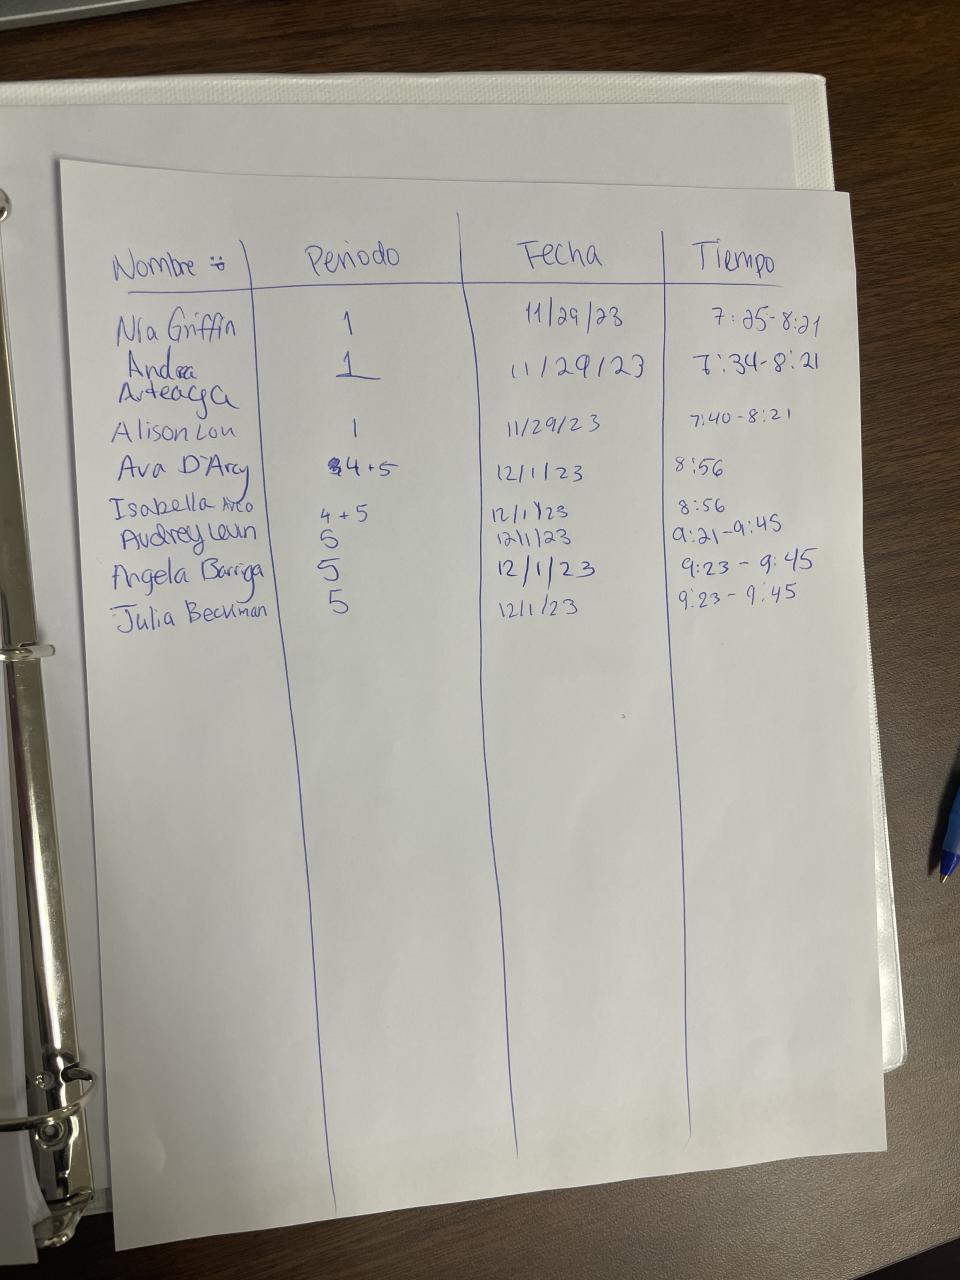 Nombre Periodo Fecha Tiempo
Nia Griffin 1 11/29/23 7:25-8:21
Andrea 1 11/29/23 7:34-8:21
Arteaga
Alison Lou 1 11/29/23 7:40-8:21
Ava D'Arcy 4+5 12/1/23 8:56
Isabella 4+5 12/1/23 8:56
Audrey 5 12/1/23 9:21-9:45
Angela Barriga 5 12/1/23 9:23-9:45
Julia Beckman 5 12/1/23 9:23-9:45